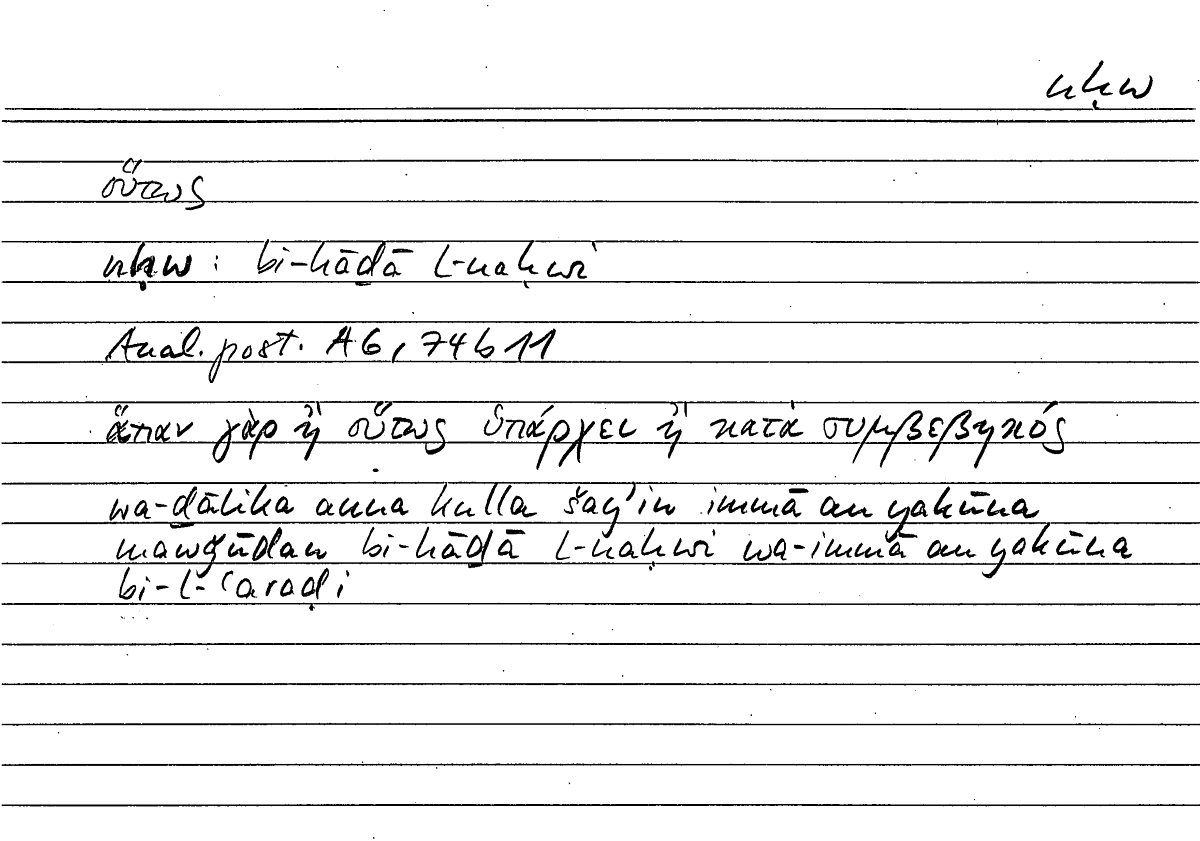 nḥw
οὕτως
nḥw : bi-hāḏā l-naḥwi
Anal. post. A6, 74b11
ἅπαν γὰρ ἢ οὕτως ὑπάρχει ἢ κατὰ συμβεβηκός
wa-ḏālika anna kulla šay’in immā an yakūna
mawǧūdan bi-hāḏā l-naḥwi wa-immā an yakūna
bi-l-ʿaraḍi